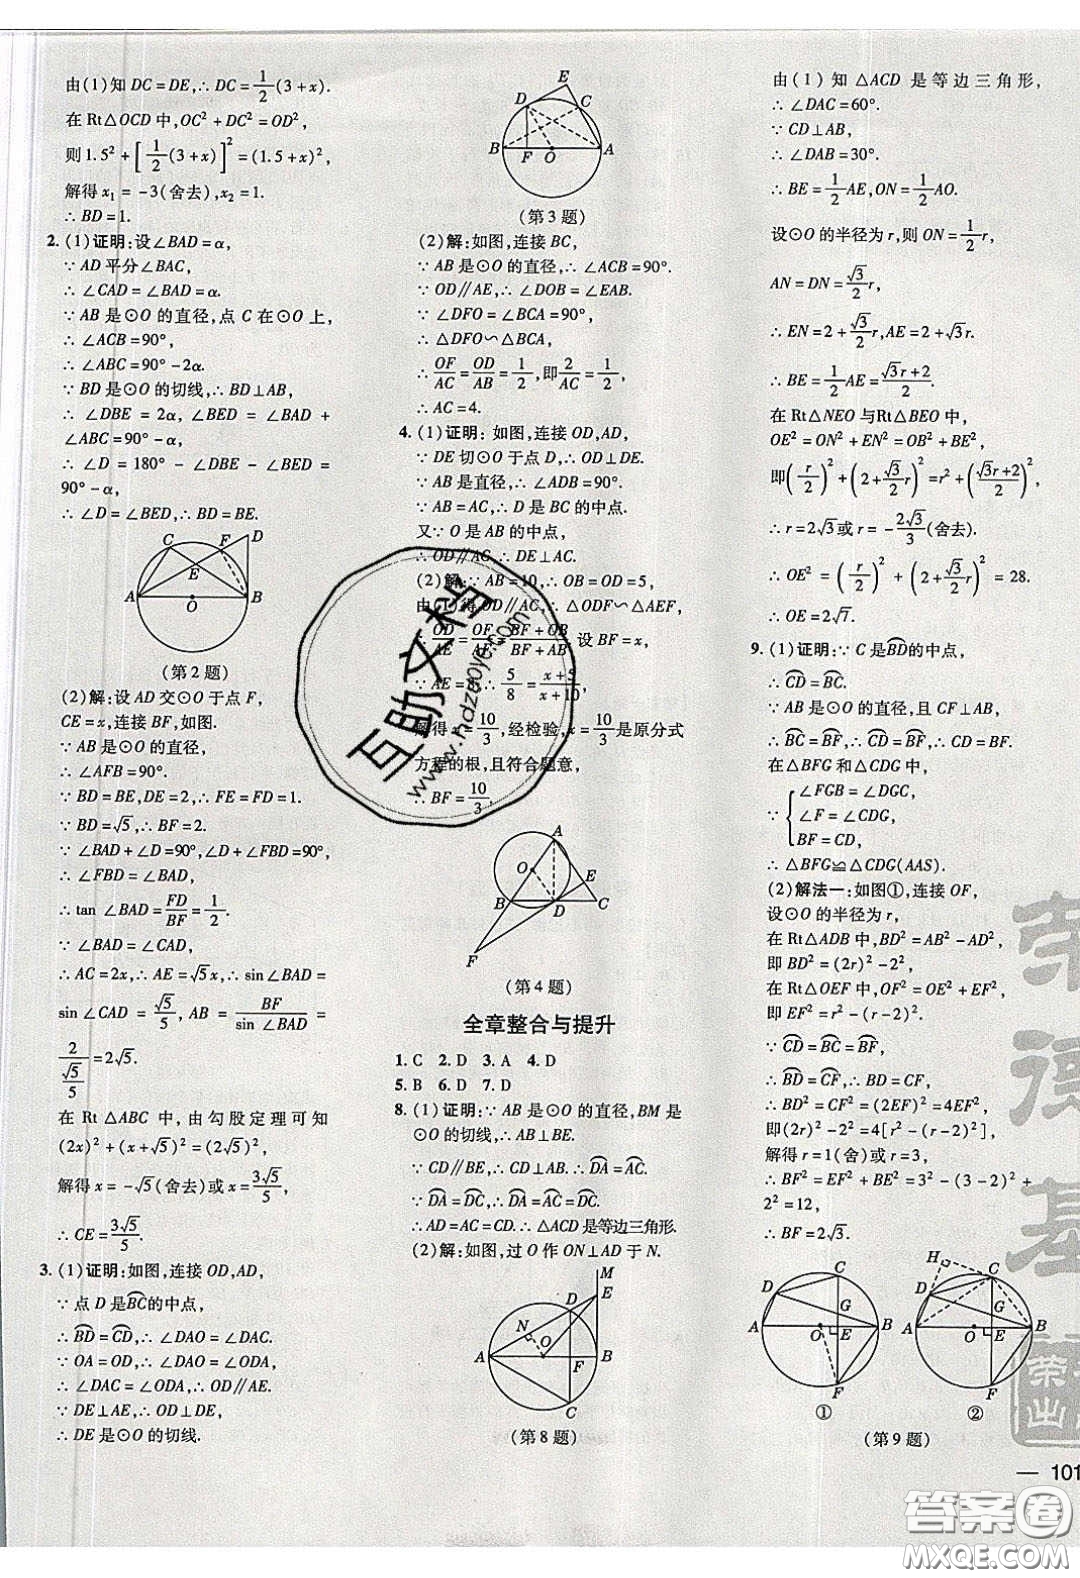 由(1)知 DC=DE,∴ DC=1/2(3+x).
在 Rt△OCD 中,OC²+DC²=OD²,
则 1.5²+[1/2(3+x)]²=(1.5+x)²,
解得 x₁=-3(舍去),x₂=1.
∴ BD=1.
2. (1)证明:设∠BAD=α,
∵ AD 平分∠BAC,
∴ ∠CAD=∠BAD=α.
∵ AB 是⊙O 的直径,点 C 在⊙O 上,
∴ ∠ACB=90°,
∴ ∠ABC=90°-2α.
∵ BD 是⊙O 的切线,∴ BD⊥AB,
∴ ∠DBE=2α,∠BED=∠BAD+
∠ABC=90°-α,
∴ ∠D=180°-∠DBE-∠BED=
90°-α,
∴ ∠D=∠BED,∴ BD=BE.
C F D E A O B
(第 2 题)
(2)解:设 AD 交⊙O 于点 F,
CE=x,连接 BF,如图.
∵ AB 是⊙O 的直径,
∴ ∠AFB=90°.
∵ BD=BE,DE=2,∴ FE=FD=1.
∵ BD=√5,∴ BF=2.
∵ ∠BAD+∠D=90°,∠D+∠FBD=90°,
∴ ∠FBD=∠BAD,
∴ tan ∠BAD=FD/BF=1/2.
∵ ∠BAD=∠CAD,
∴ AC=2x,∴ AE=√5x,∴ sin∠BAD=
sin ∠CAD=√5/5, AB=BF/sin ∠BAD=
2/(√5/5)=2√5.
在 Rt △ABC 中,由勾股定理可知
(2x)²+(x+√5)²=(2√5)²,
解得 x=-√5(舍去)或 x=3√5/5,
∴ CE=3√5/5.
3. (1)证明:如图,连接 OD,AD,
∵ 点 D 是B͡C的中点,
∴ B͡D=C͡D,∴ ∠CAD=∠BAD.
∵ OA=OD,∴ ∠BAD=∠ODA,
∴ ∠DAC=∠ODA,∴ OD∥AE.
∵ DE⊥AE,∴ OD⊥DE,
∴ DE 是⊙O 的切线.
E D C B F O A
(第 3 题)
(2)解:如图,连接 BC,
∵ AB 是⊙O 的直径,∴ ∠ACB=90°.
∵ OD∥AE,∴ ∠DOB=∠EAB.
∵ ∠DFO=∠BCA=90°,
∴ △DFO∽△BCA,
∴ OF/AC=OD/AB=1/2,即2/AC=1/2,
∴ AC=4.
4. (1)证明:如图,连接 OD,AD,
∵ DE 切⊙O 于点 D,∴ OD⊥DE.
∵ AB 是直径,∴ ∠ADB=90°.
∵ AB=AC,∴ D 是 BC 的中点.
又∵ O 是 AB 的中点,
∴ OD∥AC,∴ DE⊥AC.
(2)解:∵ AB=10,∴ OB=OD=5,
由(1)得 OD∥AC,∴ △ODF∽△AEF,
∴ OD/AE=OF/AF=(BF+OB)/(BF+AB). 设 BF=x,
∵ AE=8,∴ 5/8=(x+5)/(x+10),
解得 x=10/3,经检验,x=10/3是原分式
方程的根,且符合题意,
∴ BF=10/3.
A O E B D C F
(第 4 题)
全章整合与提升
1. C 2. D 3. A 4. D
5. B 6. D 7. D
8. (1)证明:∵ AB 是⊙O 的直径,BM 是
⊙O 的切线,∴ AB⊥BE.
∵ CD∥BE,∴ CD⊥AB.∴ D͡A=A͡C.
∵ D͡A=D͡C,∴ D͡A=A͡C=D͡C.
∴ AD=AC=CD.∴ △ACD 是等边三角形.
(2)解:如图,过 O 作 ON⊥AD 于 N.
M E D N O A F B C
(第 8 题)
由(1)知△ACD 是等边三角形,
∴ ∠DAC=60°.
∵ CD⊥AB,
∴ ∠DAB=30°.
∴ BE=1/2AE,ON=1/2AO.
设⊙O 的半径为 r,则 ON=1/2r,
AN=DN=√3/2r,
∴ EN=2+√3/2r,AE=2+√3r,
∴ BE=1/2AE=(√3r+2)/2.
在 Rt△NEO 与Rt△BEO 中,
OE²=ON²+EN²=OB²+BE²,
即(r/2)²+(2+√3/2r)²=r²+((√3r+2)/2)²,
∴ r=2√3或 r=-2√3/3(舍去).
∴ OE²=(r/2)²+(2+√3/2r)²=28.
∴ OE=2√7.
9. (1)证明:∵ C 是B͡D的中点,
∴ C͡D=B͡C.
∵ AB 是⊙O 的直径,且 CF⊥AB,
∴ B͡C=B͡F,∴ C͡D=B͡F,∴ CD=BF.
在△BFG 和△CDG 中,
∵ { ∠FGB=∠DGC,
∠F=∠CDG,
BF=CD,
∴ △BFG≌△CDG(AAS).
(2)解法一:如图①,连接 OF,
设⊙O 的半径为 r,
在 Rt△ADB 中,BD²=AB²-AD²,
即 BD²=(2r)²-2²,
在 Rt△OEF 中,OF²=OE²+EF²,
即 EF²=r²-(r-2)².
∵ C͡D=B͡C=B͡F,
∴ B͡D=C͡F,∴ BD=CF,
∴ BD²=CF²=(2EF)²=4EF²,
即(2r)²-2²=4[r²-(r-2)²],
解得 r=1(舍)或 r=3,
∴ BF²=EF²+BE²=3²-(3-2)²+
2²=12,
∴ BF=2√3.
C D G A O E B F ①
H C D G A O E B F ②
(第 9 题)
— 101
互助文档
www.hdzuoye.com
荣德基
荣
出
答案圈
MXQE.COM